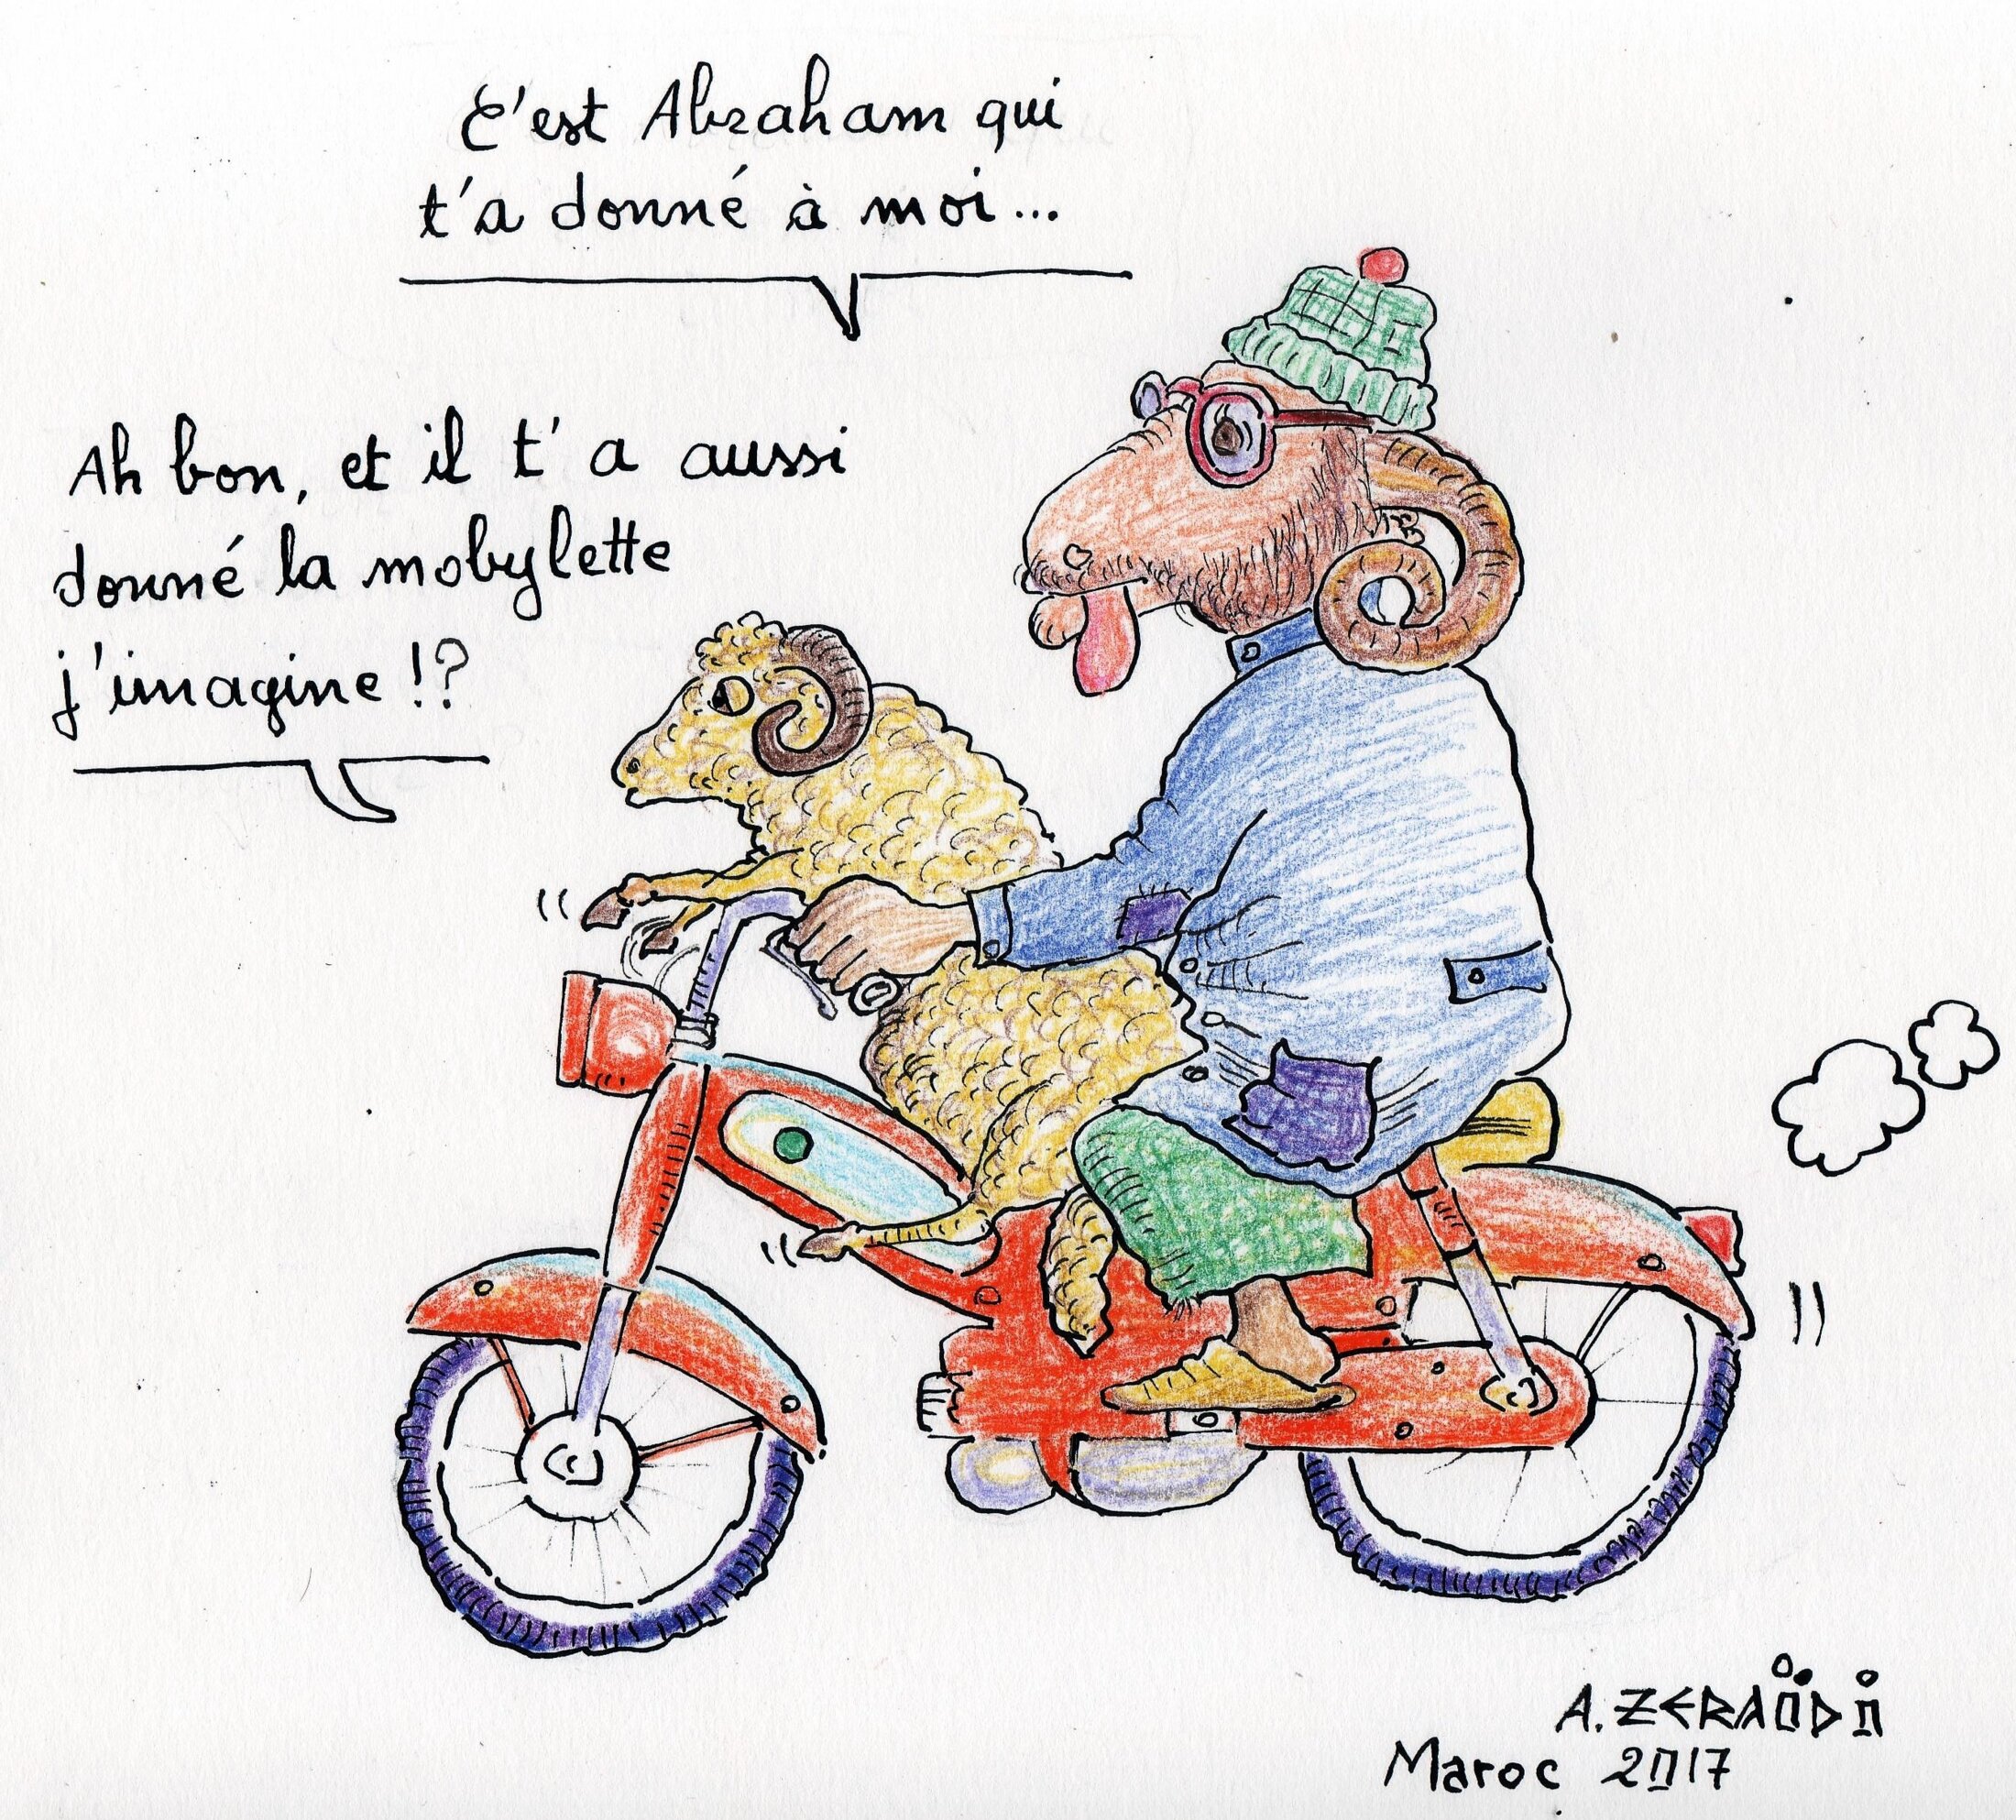 C'est Abraham qui
t'a donné à moi...
Ah bon, et il t'a aussi
donné la mobylette
j'imagine !?
A. ZERAÏDI
Maroc 2017